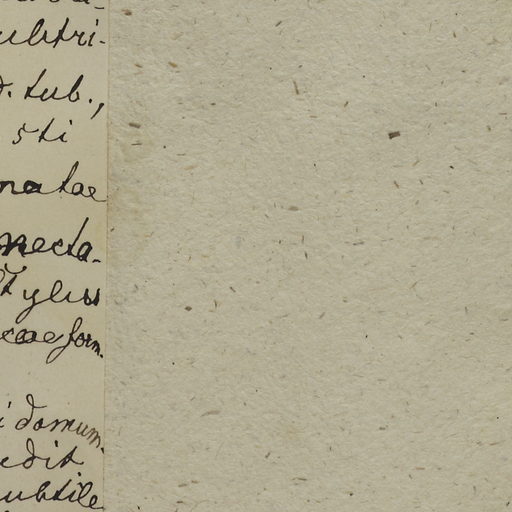 ubtri-
d. tub.,
5ti
natae
necta-
t yliss
caeform.
i domum.
edit
subtile